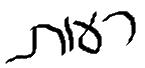 רעות